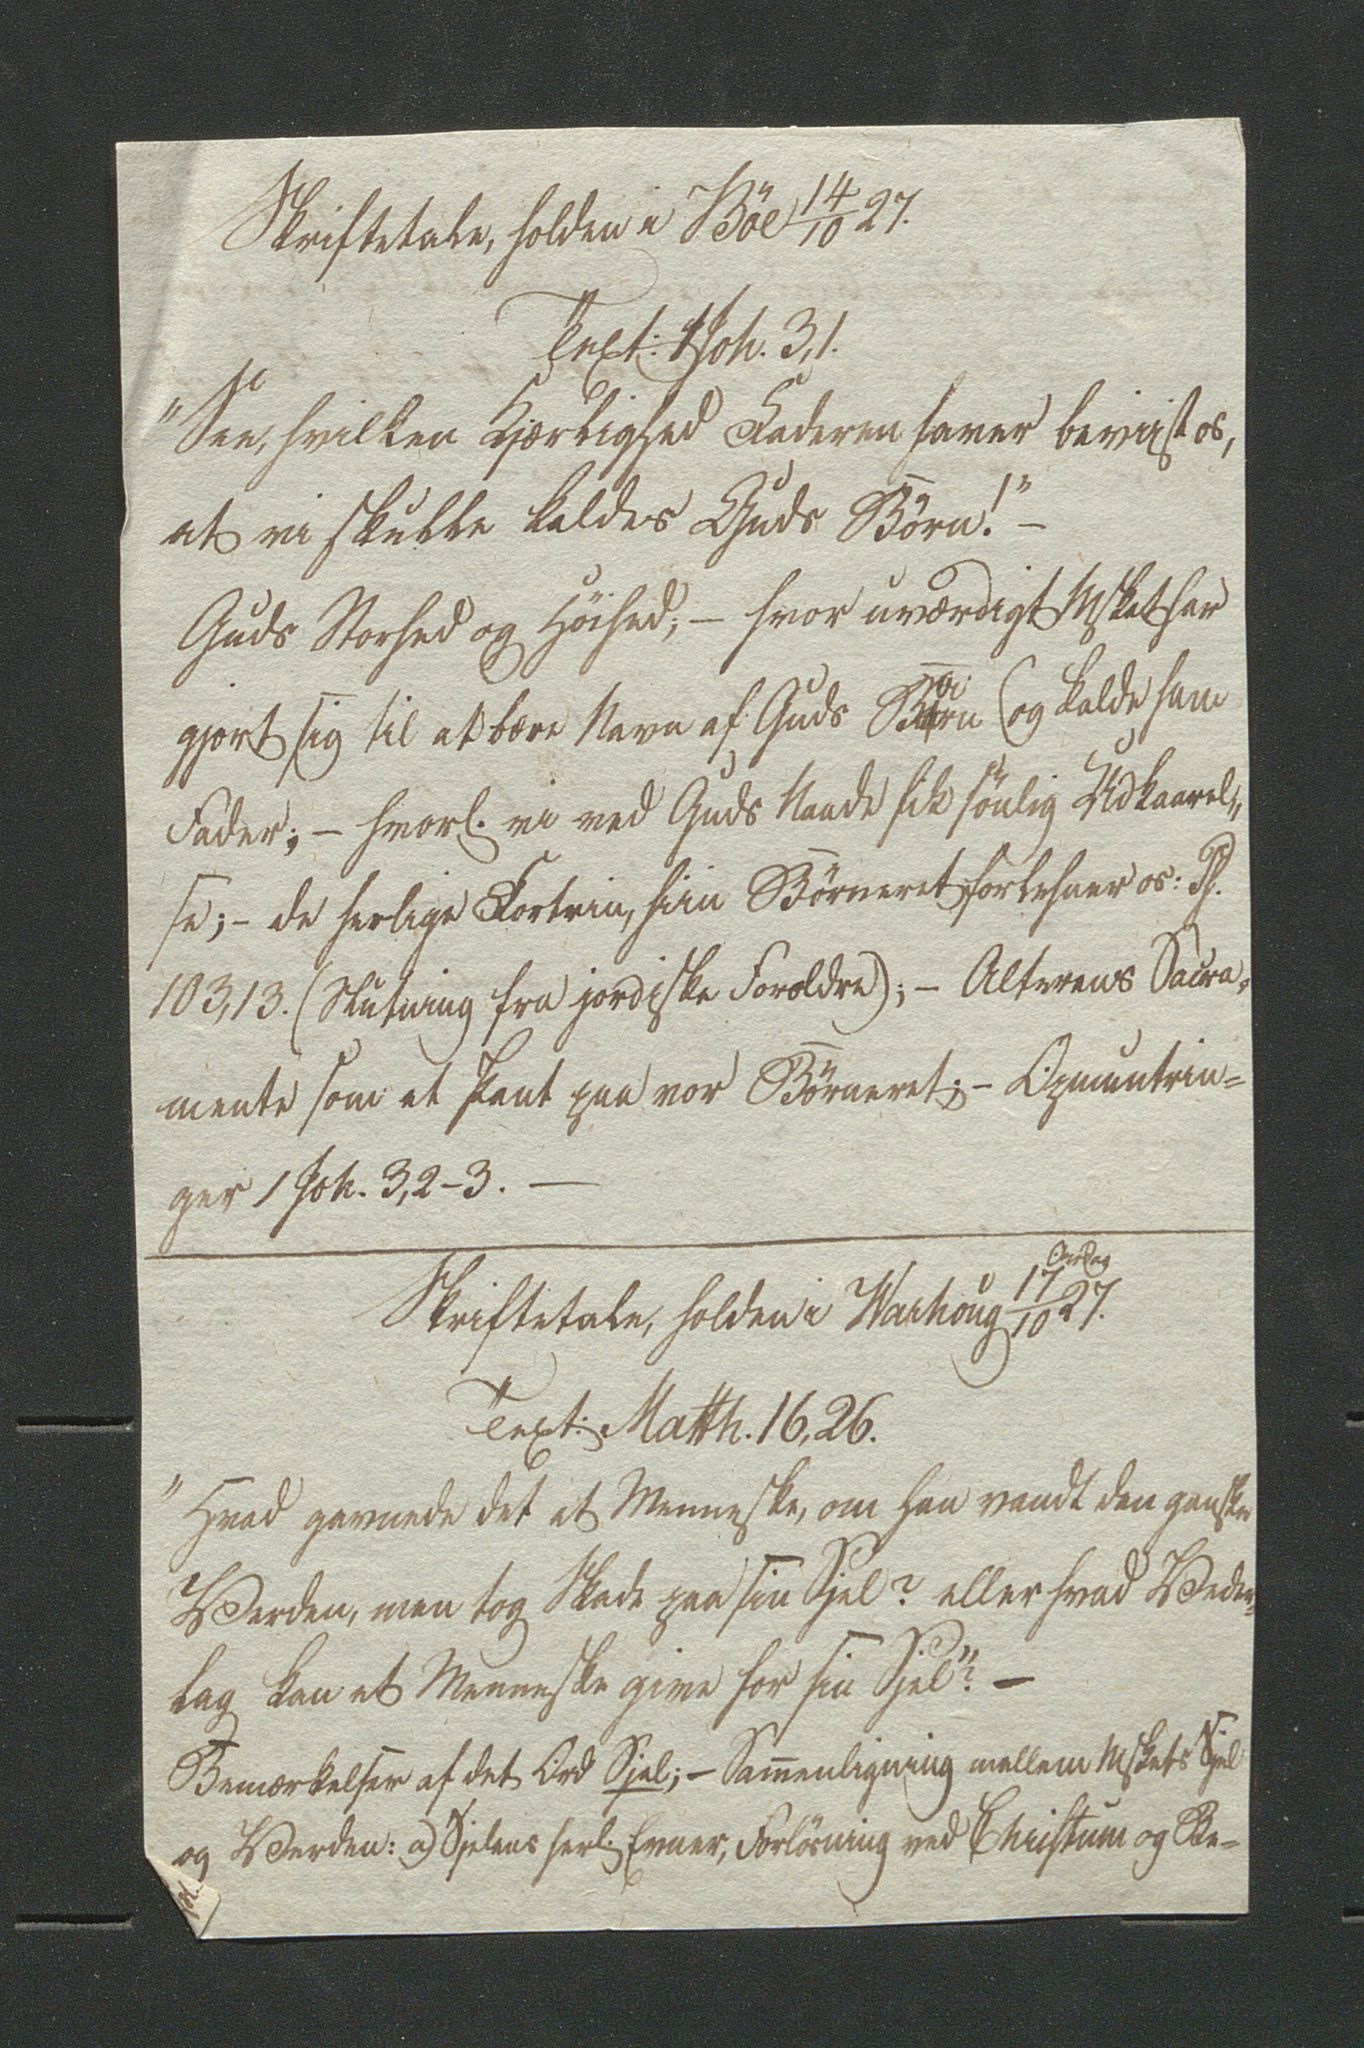 Skriftetale, holden i Böe 14/10 27.
Text: 1 Joh. 3,1.
"See, hvilken Kjærlighed Faderen haver beviist os,
at vi skulle kaldes Guds Börn!" –
Guds Storhed og Höihed; – hvor uværdigt Msket har
gjort sig til at bære Navn af Guds Börn (og kalde ham
Fader; – hvorl. vi ved Guds Naade fik sönlig Udkaarel„
se; – de herlige Fortrin, hiin Börneret forlehner os: Ps.
103,13. (Slutning fra jordiske Forældre); – Alterens Sacra„
mente som et Pant paa vor Börneret; – Opmuntrin=
ger 1 Joh. 3,2–3. –
Skriftetale, holden i 17/10 27.
Onsdag
Text: Matth. 16,26.
"Hvad gavnede det et Menneske, om han vandt den ganske
Verden, men tog Skade paa sin Sjel? eller hvad Veder„
lag kan et Menneske give for sin Sjel"? –
Bemærkelser af det Ord Sjel; – Sam̄enligning mellem Mskets Sjel
og Verden: a) Sjelens herl. Evner, Forlösning ved Christum og Be=